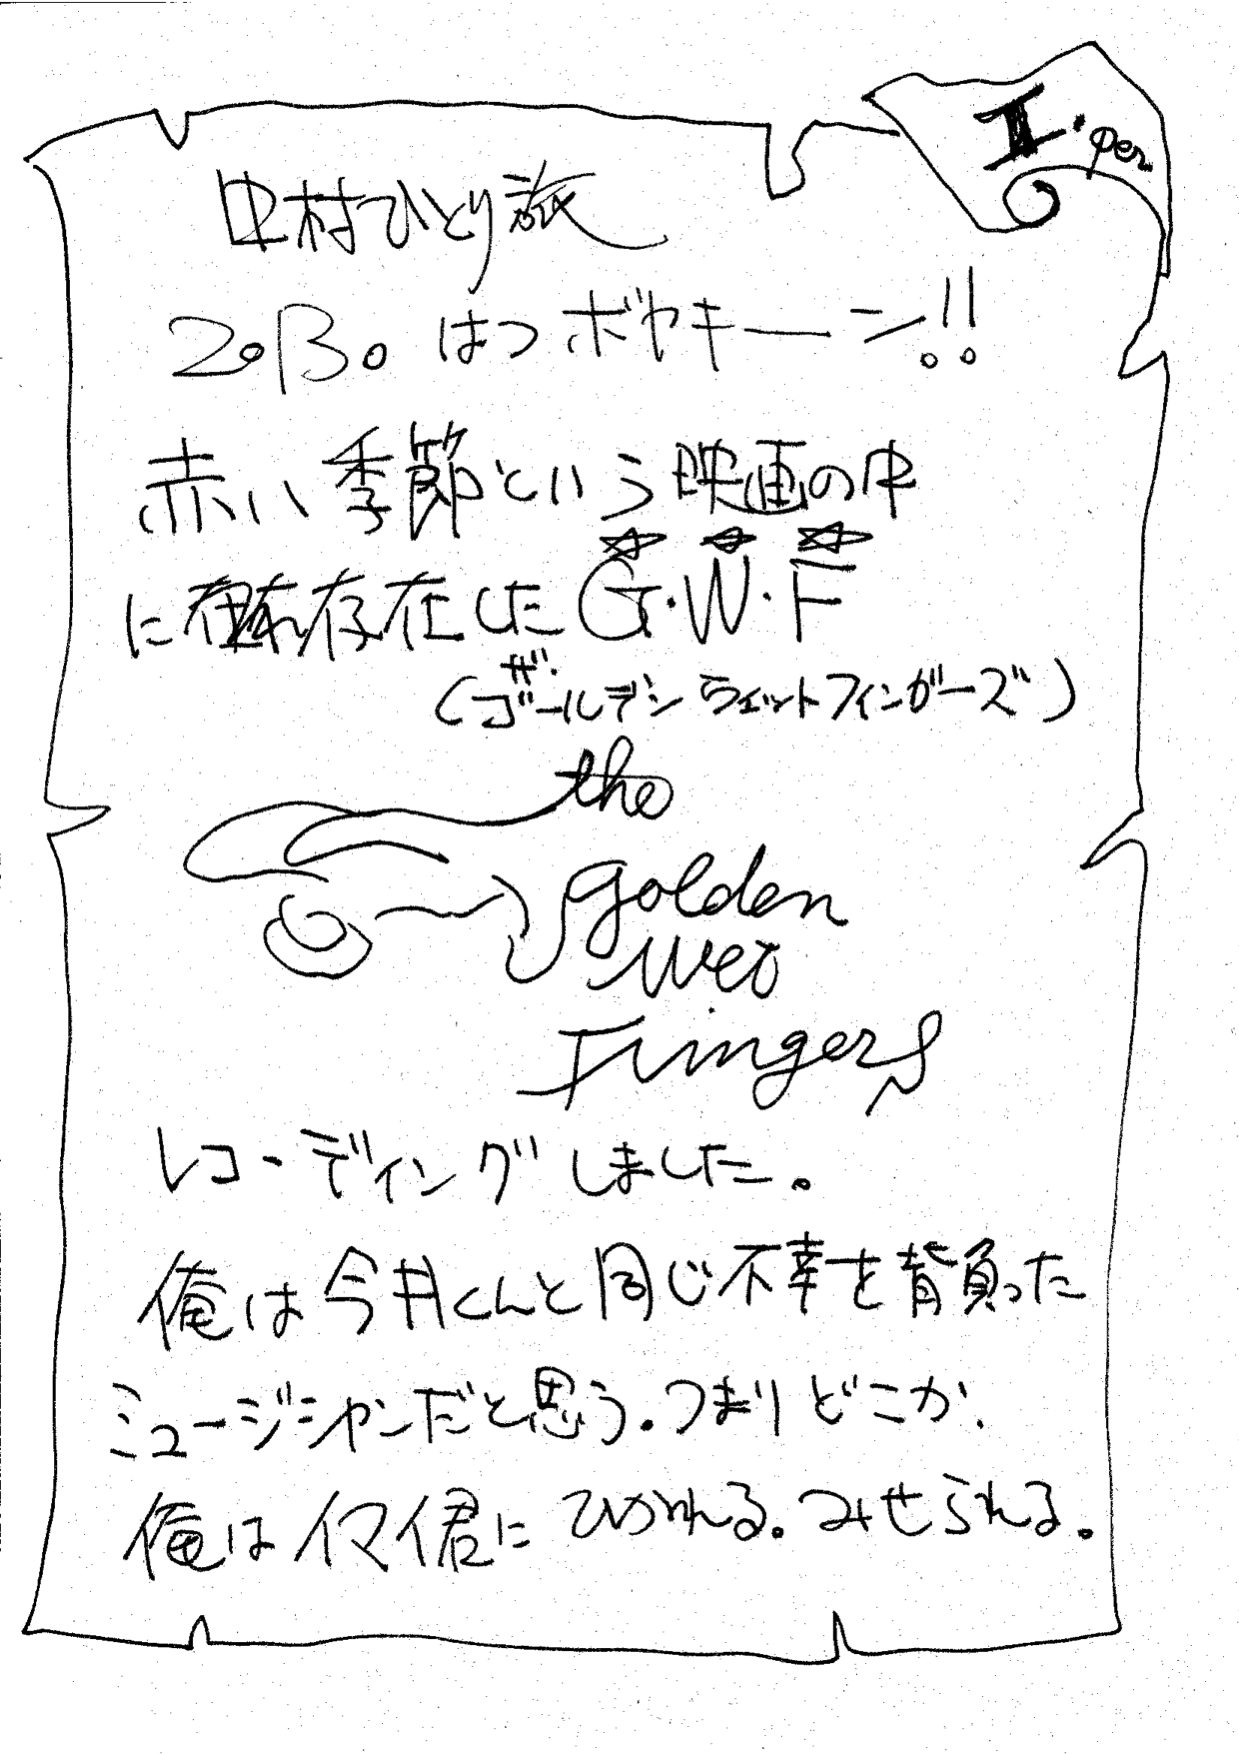 II・per
中村ひとり旅
2.B.はつボヤキーン!!
赤い季節という映画の中
に存在したG・W・F
(ザ・ゴールデンウェットフィンガーズ)
the
golden
wet
Fingers
レコーディングしました。
俺は今井くんと同じ不幸を背負った
ミュージシャンだと思う。つまりどこか、
俺はイマイ君にひかれる。みせられる。